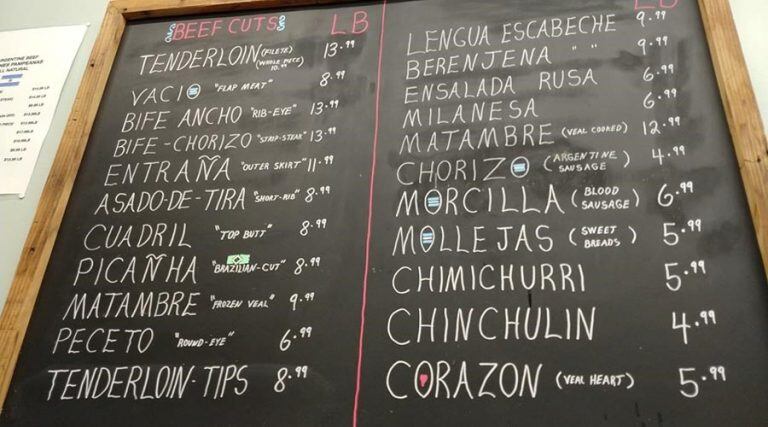 ARGENTINE BEEF
NES PAMPEANAS
ALL NATURAL
BEEF CUTS LB
TENDERLOIN (FILETE) 13.99
(WHOLE PIECE)
VACIO "FLAP MEAT" 8.99
BIFE ANCHO "RIB-EYE" 13.99
BIFE-CHORIZO "STRIP-STEAK" 13.99
ENTRAÑA "OUTER SKIRT" 11.99
ASADO-DE-TIRA "SHORT-RIB" 8.99
CUADRIL "TOP BUTT" 8.99
PICAÑHA "BRAZILIAN-CUT" 8.99
MATAMBRE "FROZEN VEAL" 9.99
PECETO "ROUND-EYE" 6.99
TENDERLOIN-TIPS 8.99
LB
LENGUA ESCABECHE 9.99
BERENJENA " " 9.99
ENSALADA RUSA 6.99
MILANESA 6.99
MATAMBRE (VEAL COOKED) 12.99
CHORIZO (ARGENTINE SAUSAGE) 4.99
MORCILLA (BLOOD SAUSAGE) 6.99
MOLLEJAS (SWEET BREADS) 5.99
CHIMICHURRI 5.99
CHINCHULIN 4.99
CORAZON (VEAL HEART) 5.99